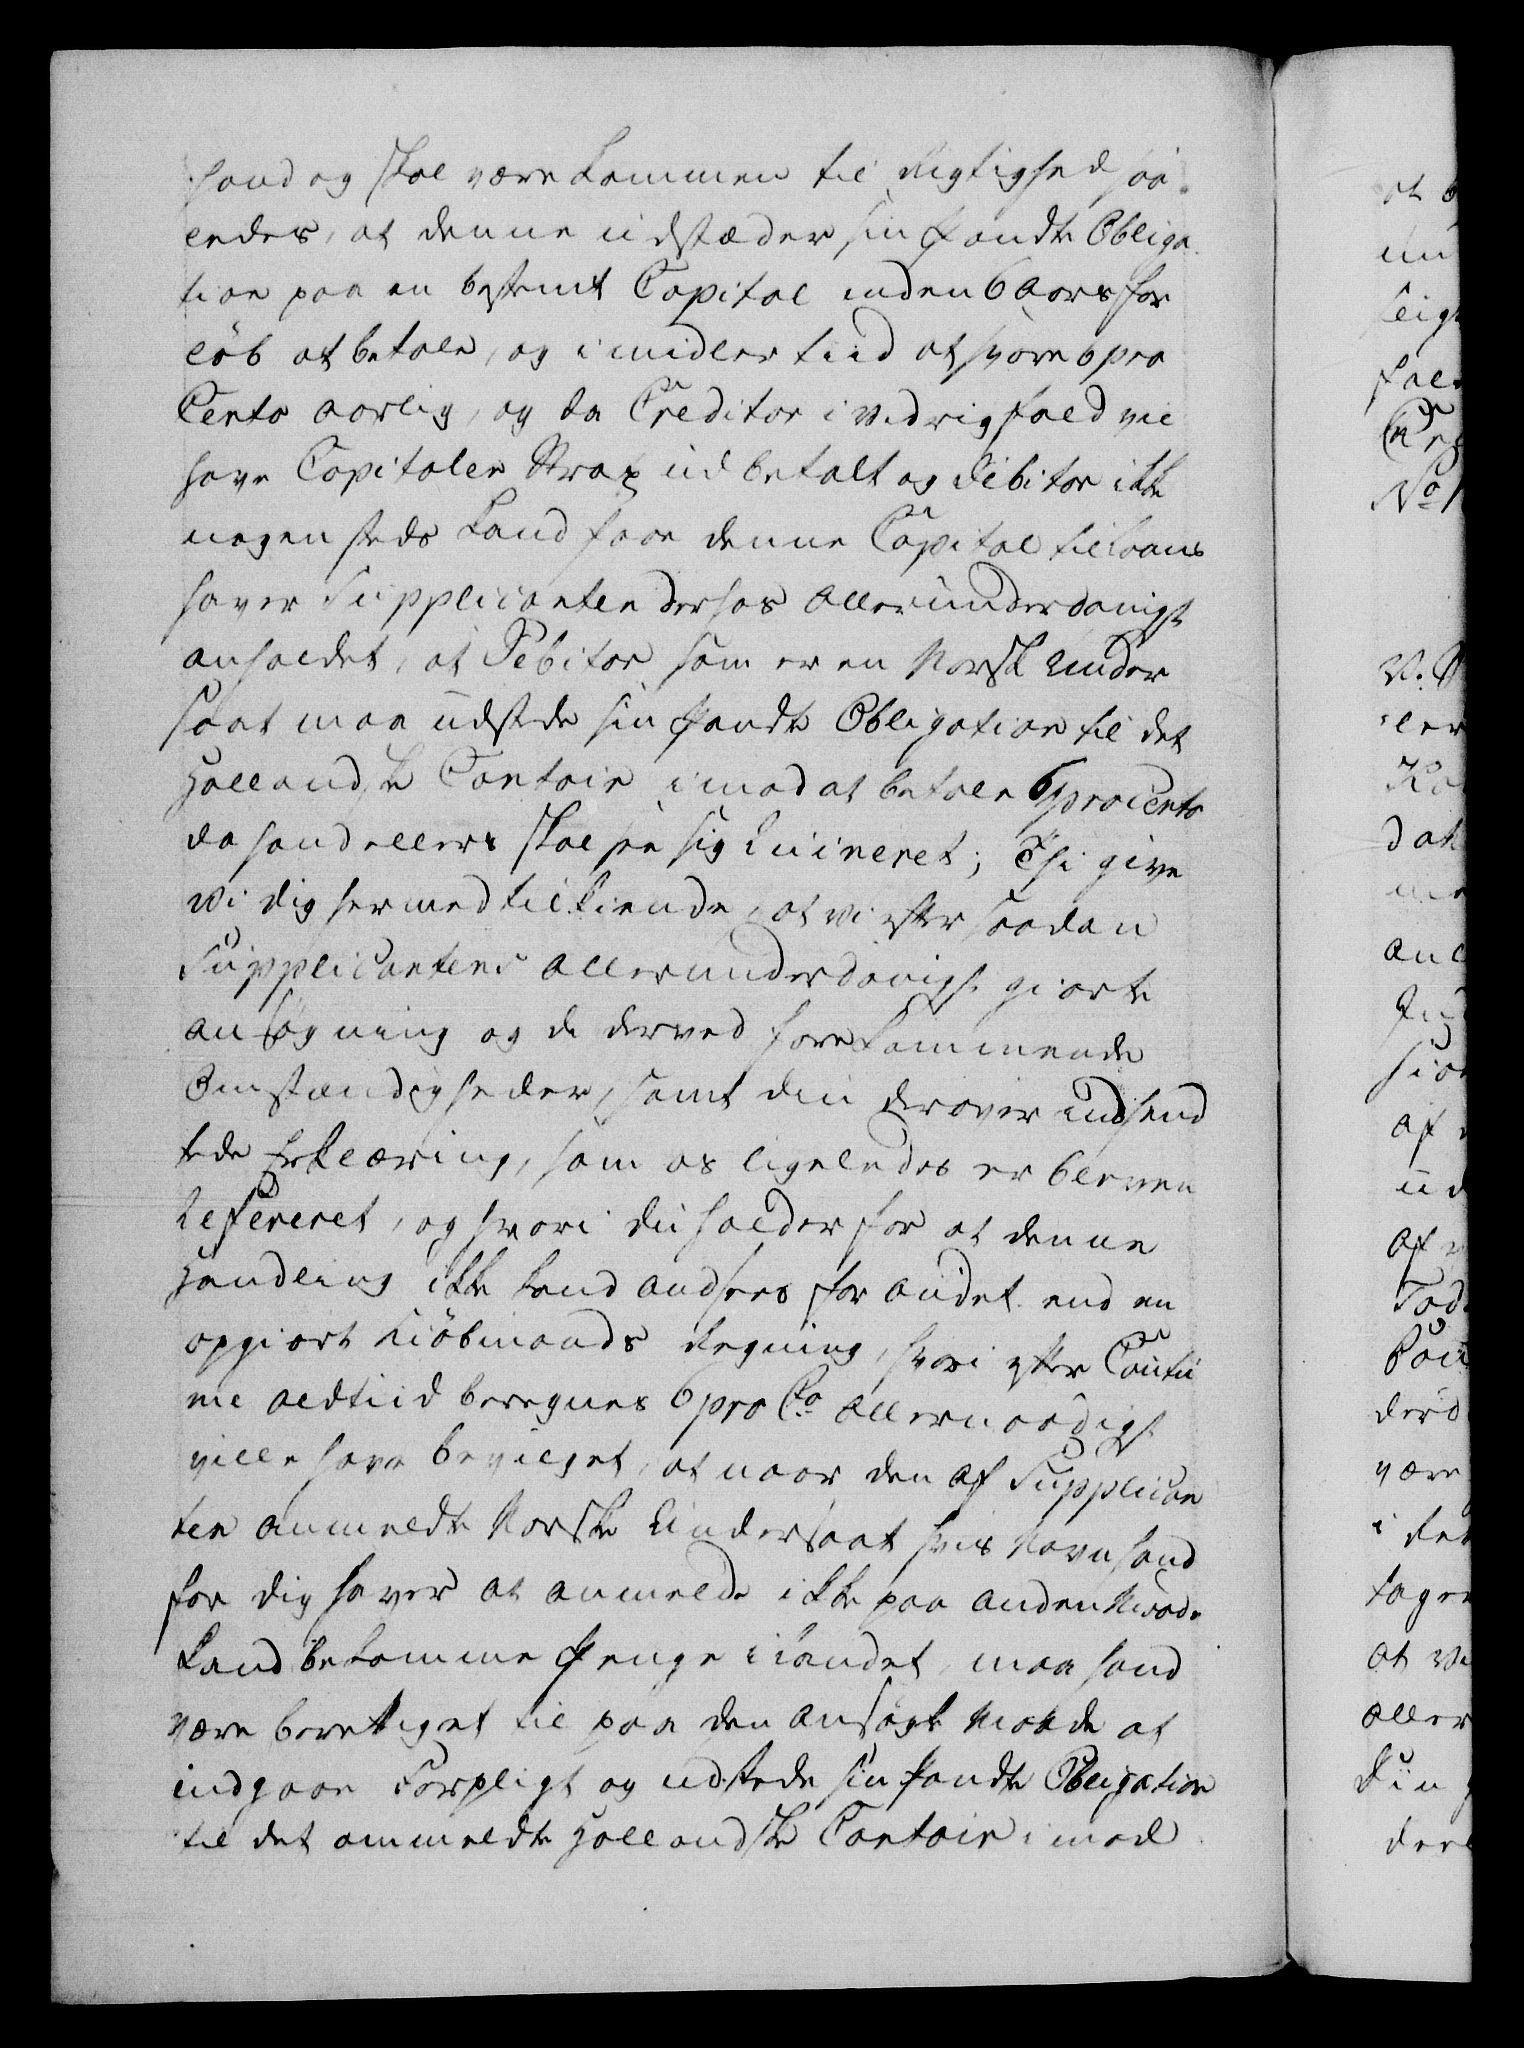 hand og skal være kommen til Rigtighed saa
ledes, at denne udstæder sin Pandte Obliga
tion paa en bestemt Capital inden 6 Aars for
løb at betale, og imidlertiid at svare 6 pro
Cento aarlig, og da Creditor i vedrig fald vil
have Capitalen strax udbetalt og Debitor ikke
nogensteds kand faae denne Capital tillaans
haver Supplicanten derhos allerunderdanigst
anholdet, at Debitor som er en Norsk Under
saat maa udstede sin Pandte Obligation til det
Hollandske Contoir imod at betale 6 pro Cento
da hand ellers skal see sig Ruineret; Thi give
Vi dig hermed tilkiende, at vi efter saadan
Supplicantens allerunderdanigst giorte
ansøgning og de derved forekommende
Omstændigheder, samt din derover indsend
tede Erklæring, som os ligeledes er bleven
Refereret, og hvori du holder for at denne
Handling ikke kand andsees for andet end en
opgiort Kiøbmands Regning, hvori efter Coutu
me altiid beregnes 6 pro Cto allernaadigst
ville have bevilget, at naar den af Supplican
ten anmeldte Norske Undersaat hvis Navn hand
for dig haver at anmelde ikke paa anden Maade
kand bekomme Penge i Landet, maa hand
være berettiget til paa den ansøgte Maade at
indgaae Forpligt og udstede sin Pandte Obligation
til det ommeldte Hollandske Contoir imod